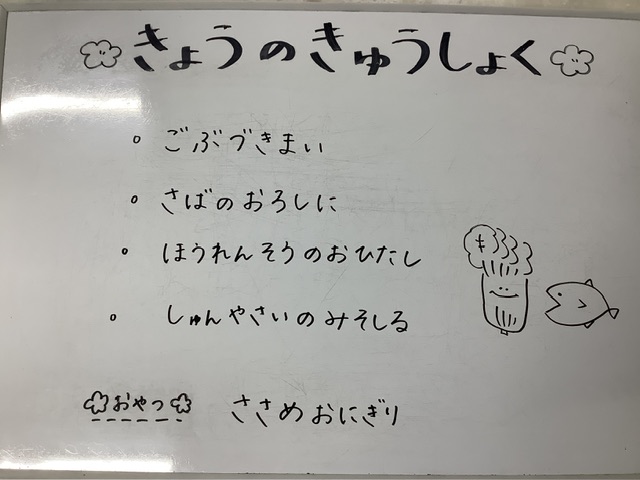 きょうのきゅうしょく
。ごぶづきまい
。さばのおろしに
。ほうれんそうのおひたし
。しゅんやさいのみそしる
おやつ ささめおにぎり